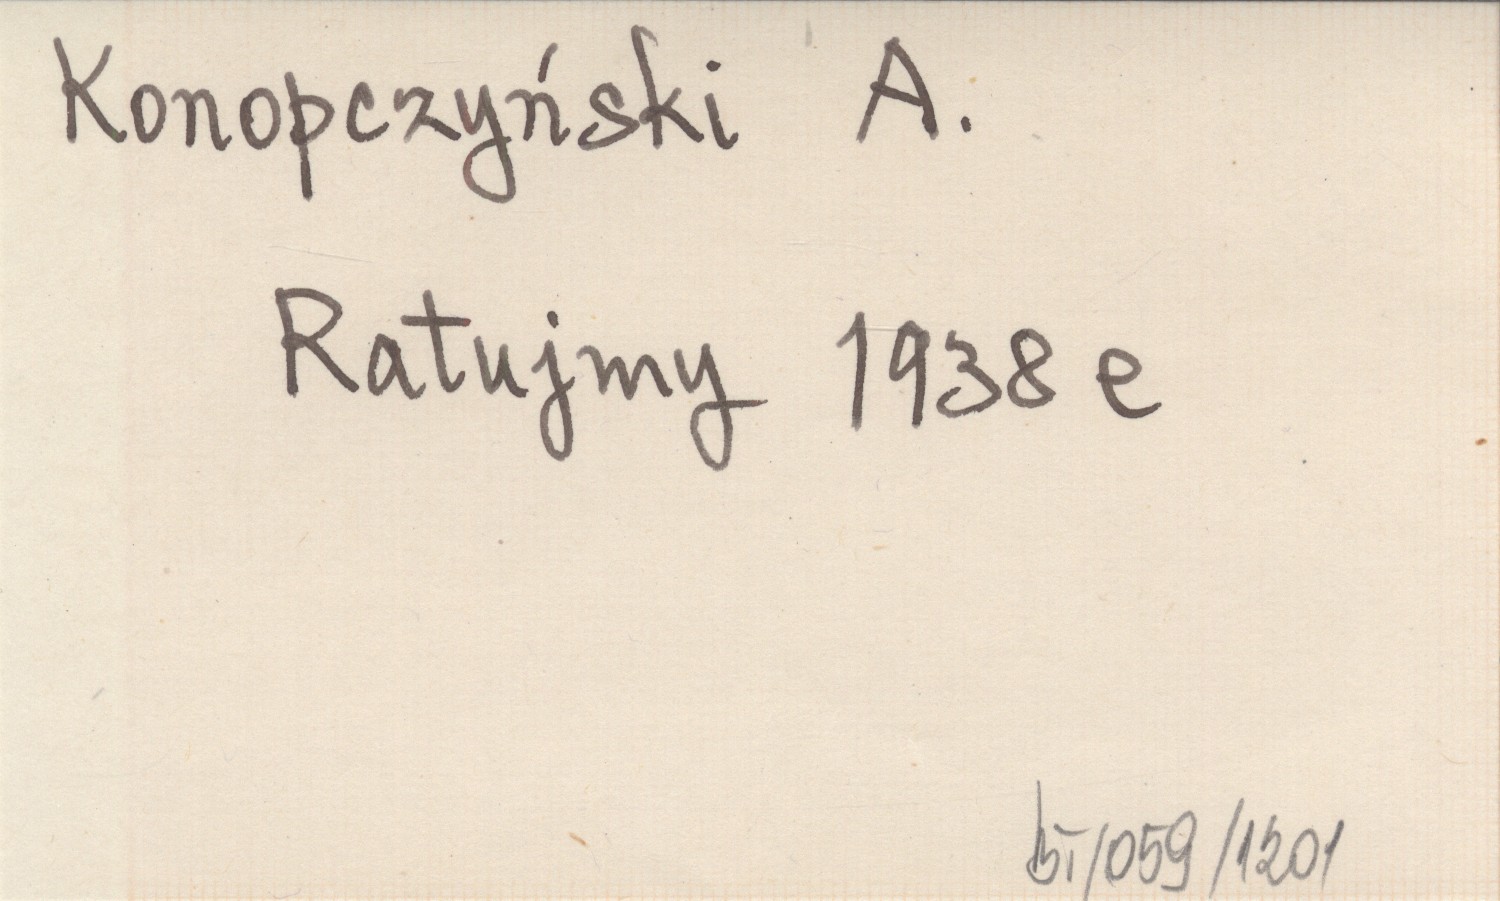 Konopczyński A.
Ratujmy 1938 e
/059/1201